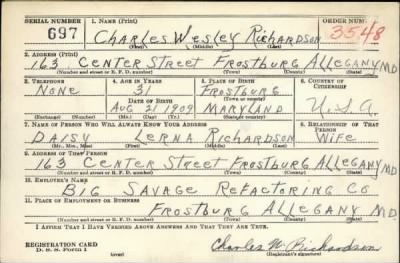 SERIAL NUMBER 1. NAME (Print) ORDER NUMBER
697 Charles Wesley Richardson 3548
(First) (Middle) (Last)
2. ADDRESS (Print)
163 Center Street Frostburg Allegany MD
(Number and street or R. F. D. number) (Town) (County) (State)
3. TELEPHONE 4. AGE IN YEARS 5. PLACE OF BIRTH 6. COUNTRY OF CITIZENSHIP
None 31 Frostburg
DATE OF BIRTH (Town or county)
Aug 21 1909 Maryland U.S.A.
(Exchange) (Number) (Mo.) (Day) (Yr.) (State or country)
7. NAME OF PERSON WHO WILL ALWAYS KNOW YOUR ADDRESS 8. RELATIONSHIP OF THAT PERSON
Daisy Lerna Richardson Wife
(Mr., Mrs., Miss) (First) (Middle) (Last)
9. ADDRESS OF THAT PERSON
163 Center Street Frostburg Allegany MD
(Number and street or R. F. D. number) (Town) (County) (State)
10. EMPLOYER'S NAME
Big Savage Refactoring Co
11. PLACE OF EMPLOYMENT OR BUSINESS
Frostburg Allegany MD.
(Number and street or R. F. D. number) (Town) (County) (State)
I AFFIRM THAT I HAVE VERIFIED ABOVE ANSWERS AND THAT THEY ARE TRUE.
REGISTRATION CARD
D. S. S. Form 1 (over) Charles W. Richardson
(Registrant's signature)